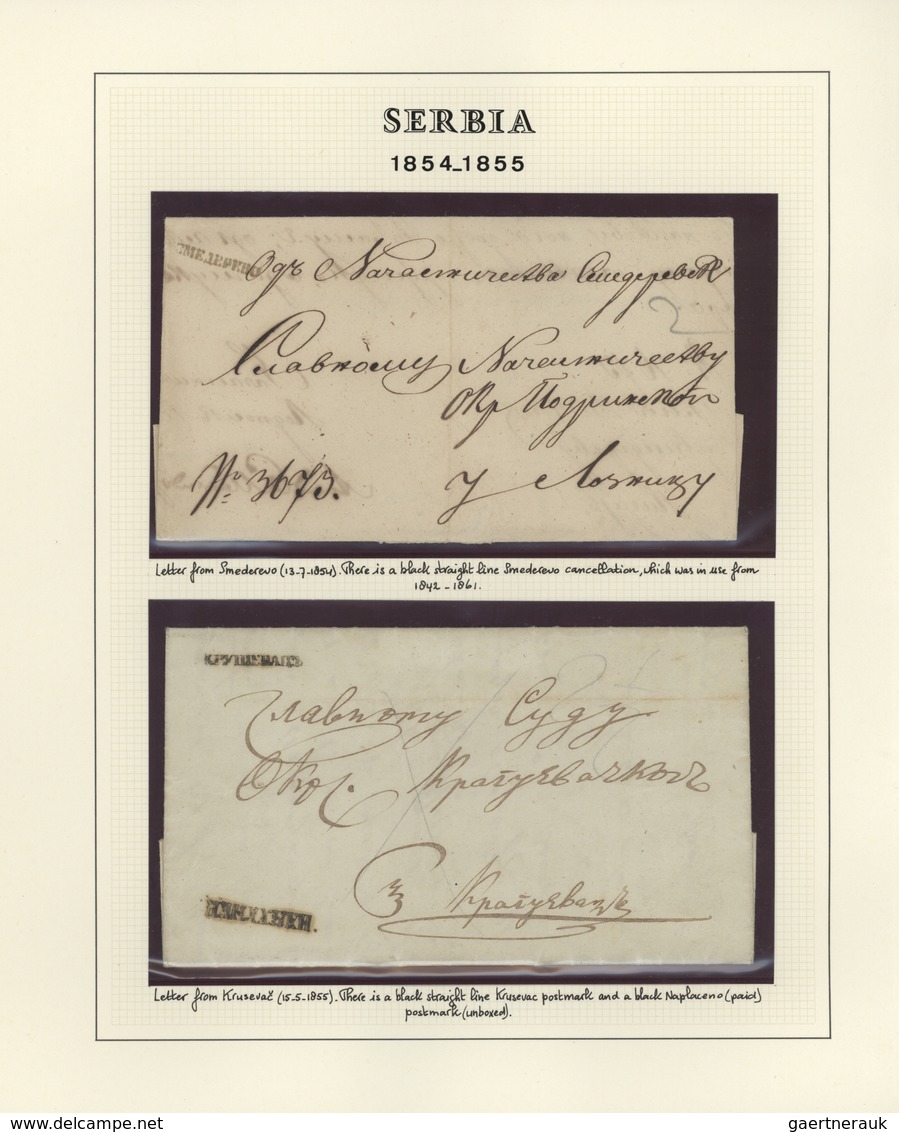 SERBIA
1854-1855
СМЕДЕРЕВО
Одъ Начастничества Смедеревск
2
Славному Начастничеству
Окр Подринског
№ 3673. у Лозницу
Letter from Smederevo (13-7-1854). There is a black straight line Smederevo cancellation, which was in use from
1842-1861.
КРУШЕВАЦЪ
Главному Суду
Окр. Крагуевачкомъ
у Крагуевацъ
Letter from Krusevač (15-5-1855). There is a black straight line Krusevac postmark and a black Naplaceno (paid)
postmark (unboxed).
www.delcampe.net
gaertnerauk